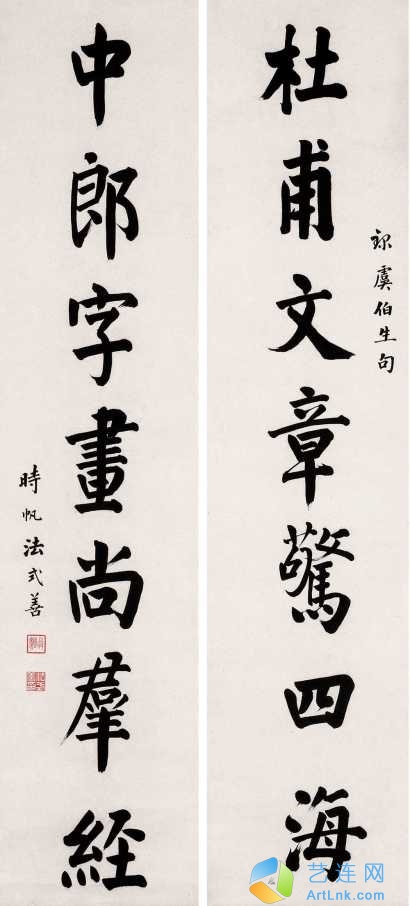 杜甫文章驚四海
錄虞伯生句
中郎字畫尚羣經
時帆法式善
艺连网
ArtLnk.com